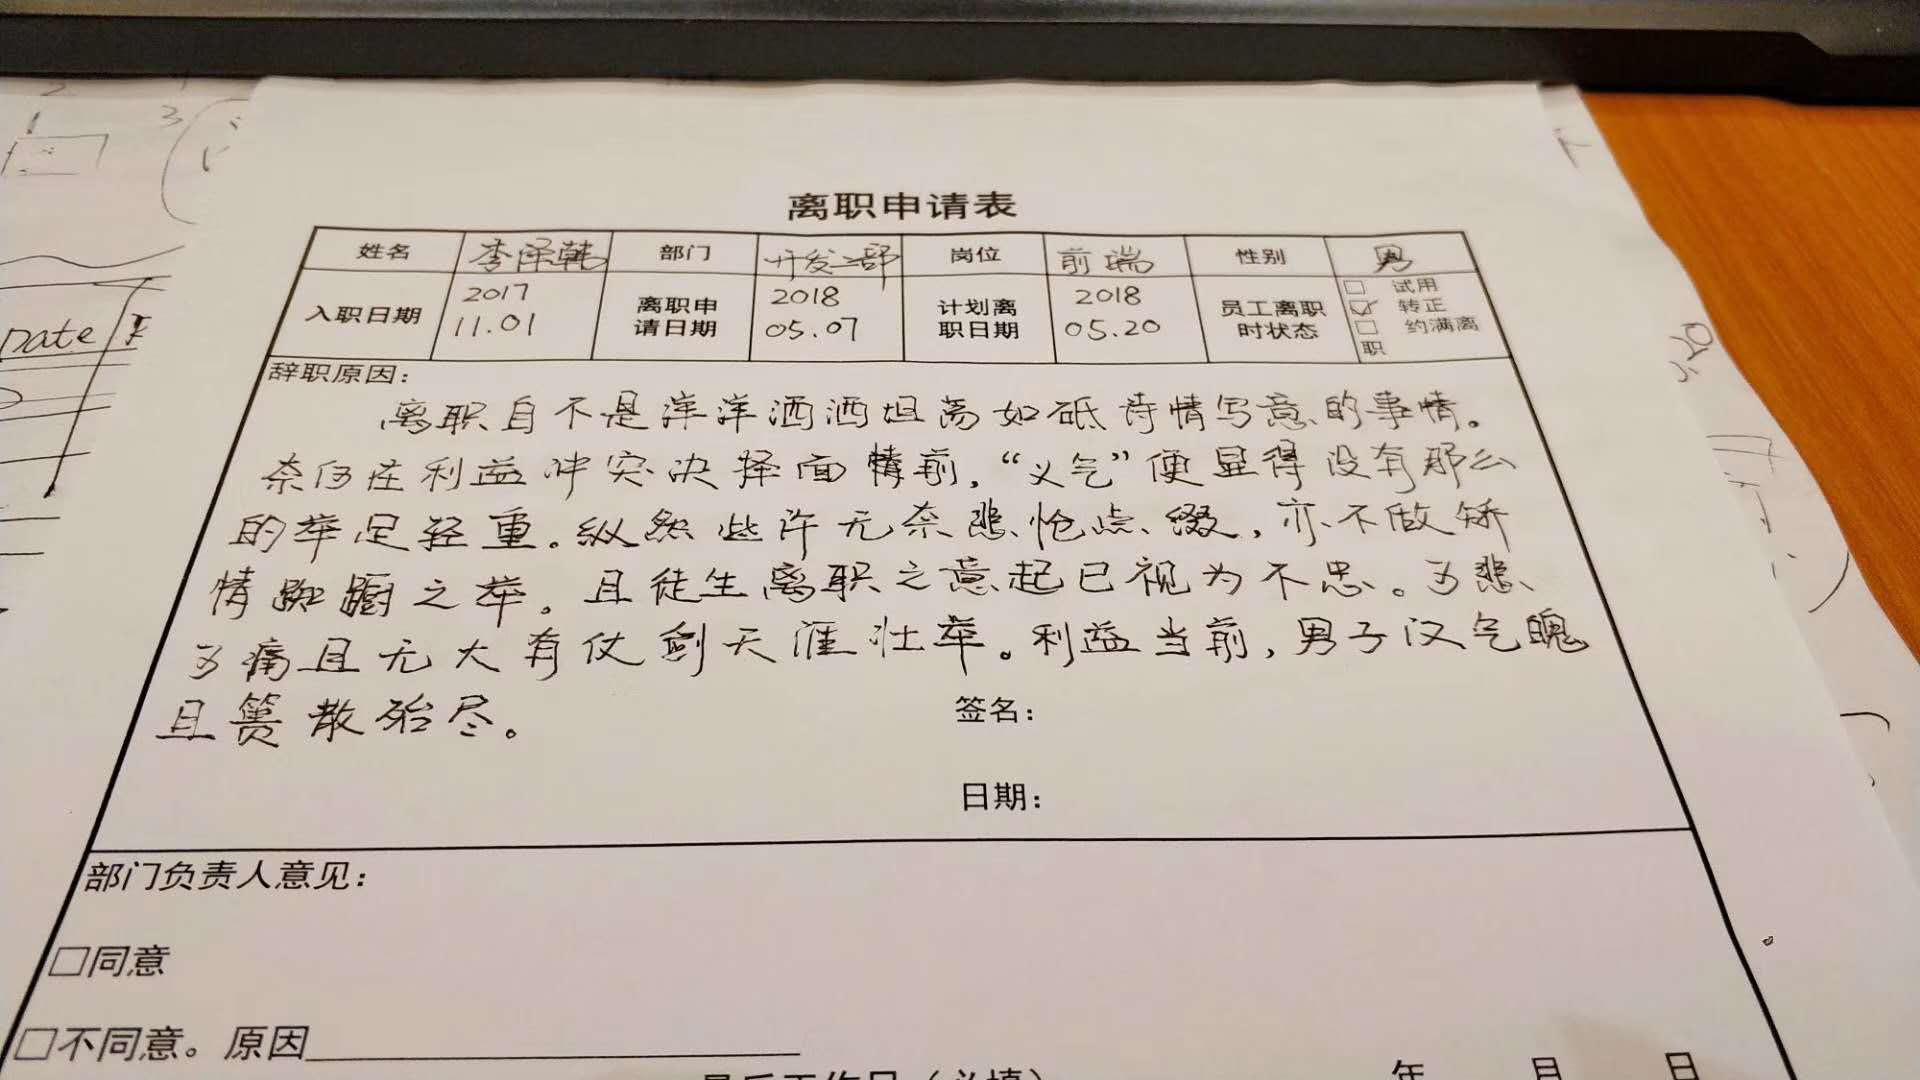 2
1
3
Date
离职申请表
姓名 李泽韩 部门 开发二部 岗位 前端 性别 男
入职日期 2017 11.01 离职申请日期 2018 05.07 计划离职日期 2018 05.20 员工离职时状态 □ 试用 ☑ 转正 □ 约满离职
辞职原因：
离职自不是洋洋洒洒坦荡如砥诗情写意的事情。
奈何在利益冲突决择面情前，“义气”便显得没有那么
的举足轻重。纵然些许无奈悲怆点缀，亦不做矫
情踟蹰之举。且徒生离职之意起已视为不忠。可悲、
可痛且无大有仗剑天涯壮举。利益当前，男子汉气魄
且篑散殆尽。
签名：
日期：
部门负责人意见：
□同意
□不同意。原因
年 月 日